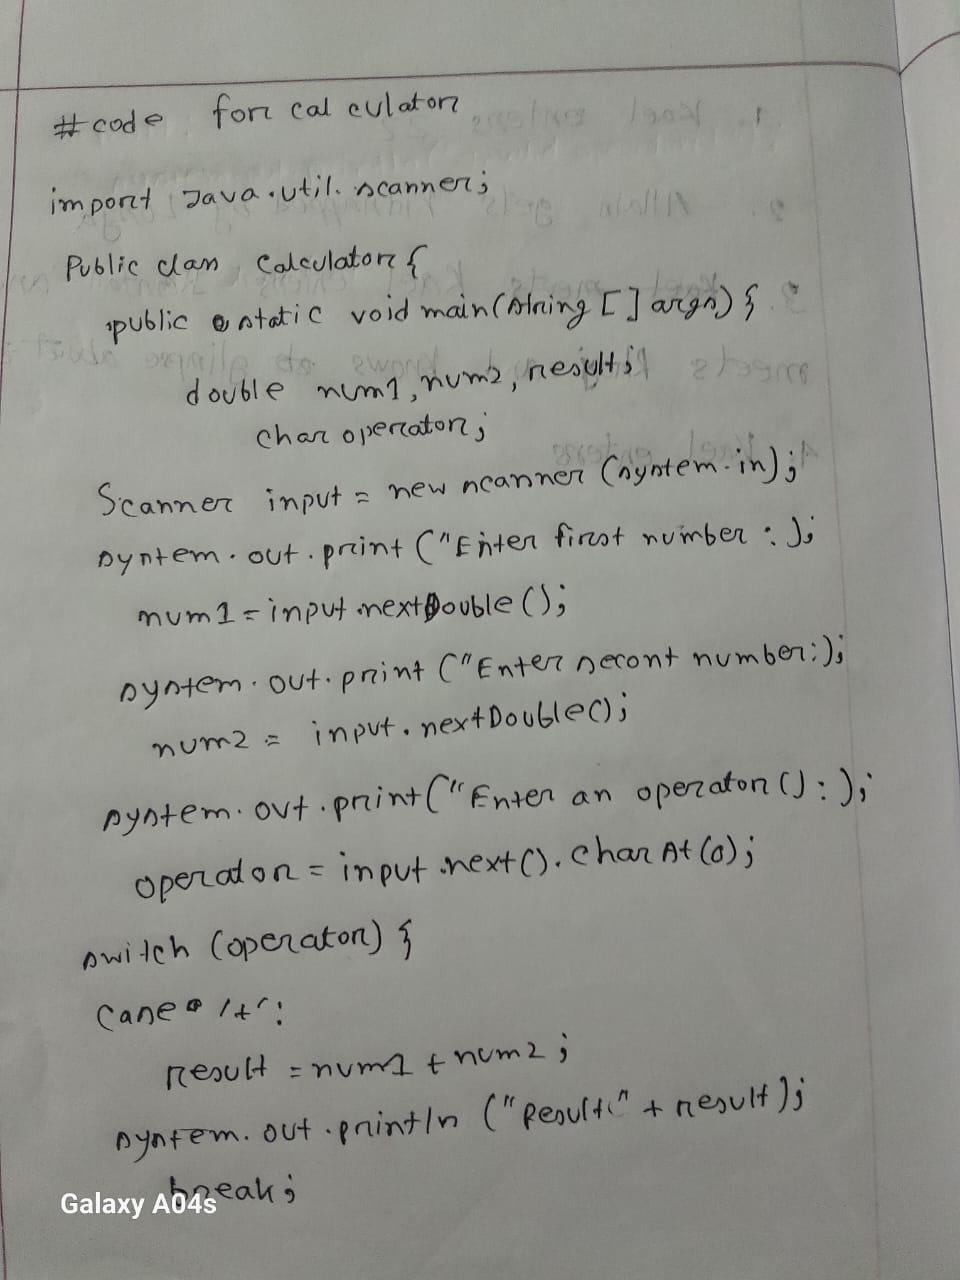 #code for calculator
import Java.util.scanner;
Public class Calculator {
public static void main(string [] args) {
double num1, num2, result;
char operator;
Scanner input = new scanner (system.in);
system.out.print ("Enter first number : );
num1 = input.nextDouble ();
system.out.print ("Enter secont number:);
num2 = input.nextDouble();
system.out.print ("Enter an operator () : );
operator = input.next().charAt(0);
switch (operator) {
case '+':
result = num1 + num2;
system.out.println ("Result:" + result);
break;
Galaxy A04s